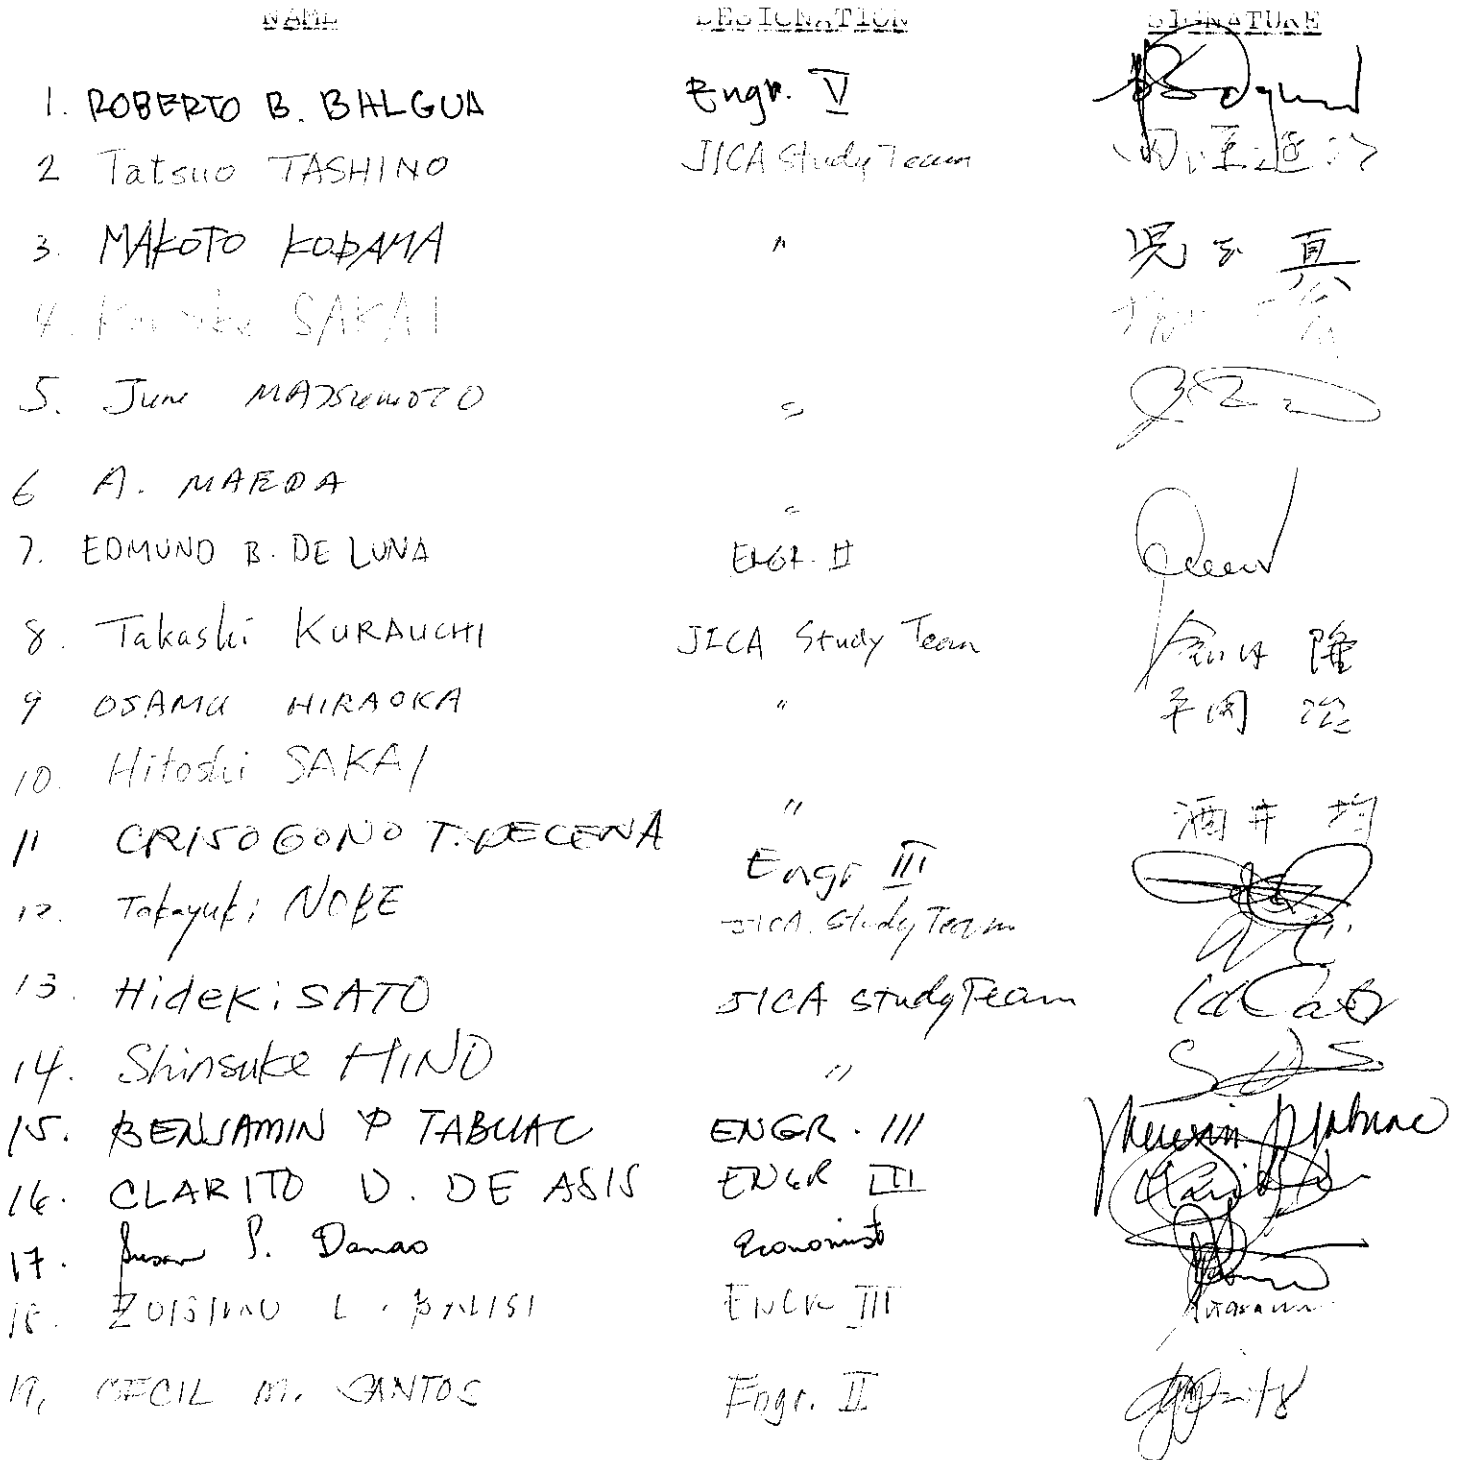 NAME DESIGNATION SIGNATURE
1. ROBERTO B. BALGUA Engr. V
2 Tatsuo TASHINO JICA Study Team
3. MAKOTO KODAMA " 児玉 真
4. SAKAI
5. June MATSUMOTO "
6 A. MAEDA "
7. EDMUND B. DE LUNA ENGR. II
8. Takashi KURAUCHI JICA Study Team 倉内 隆
9 OSAMU HIRAOKA " 平岡 治
10. Hitoshi SAKAI " 酒井 均
11 CRISOGONO T. DECENA Engr III
12. Takayuki NOBE JICA Study Team
13. Hideki SATO JICA Study Team
14. Shinsuke HINO "
15. BENJAMIN P TABUAC ENGR. III
16. CLARITO V. DE ASIS ENGR III
17. Susan P. Danao Economist
18. L. BALISI ENGR III
19, CECIL M. SANTOS Engr. II